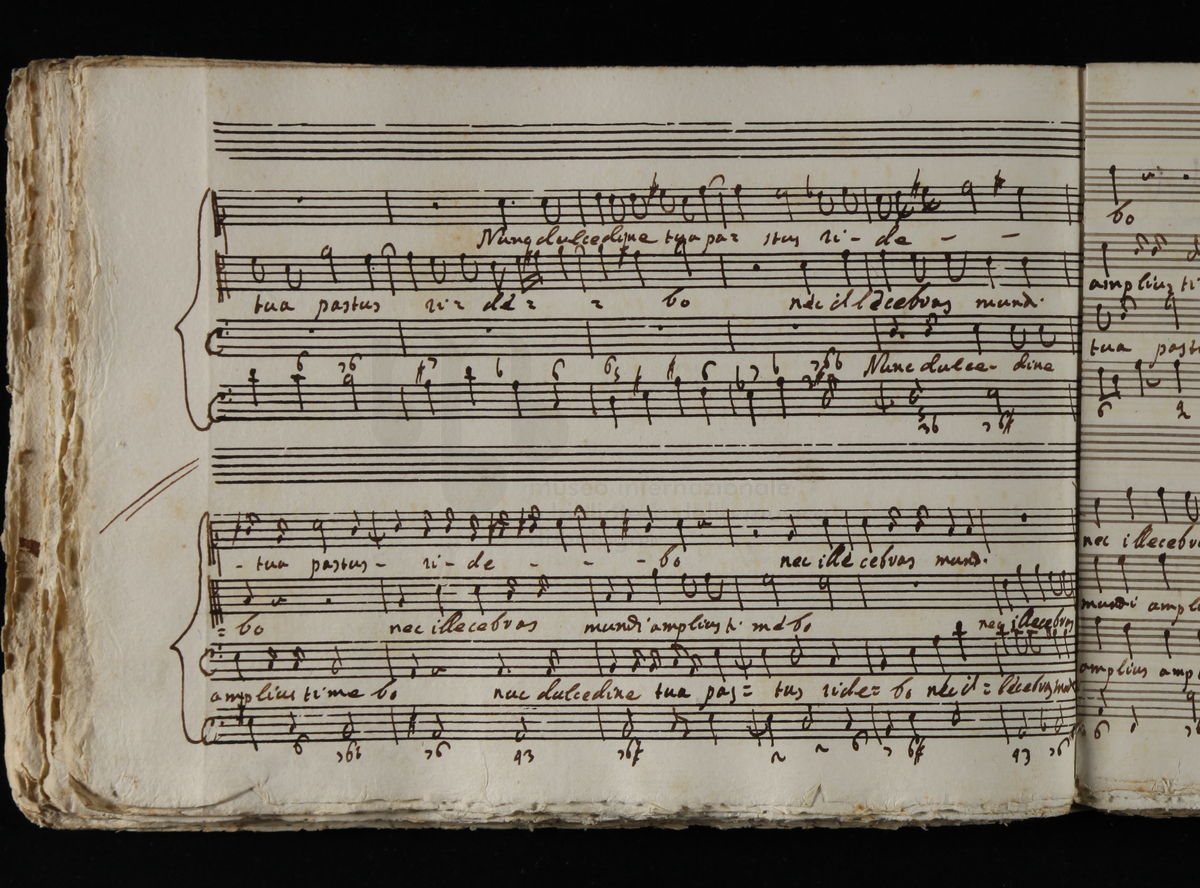 Nunc dulcedine tua pa= stus ri - de - -
tua pastus ri= de= = bo nec illecebras mundi
Nunc dulce- dine
museo internazionale
- tua pastus- ri- de - - - bo nec ille cebras mund.
= bo nec illecebras mundi amplius ti mebo nec illecebras
amplius time bo nuc dulcedine tua pas= tus ride= bo nec il= lecebras
bo
amplius ti
tua past
nec illecebr
mundi ampl
amplius amp